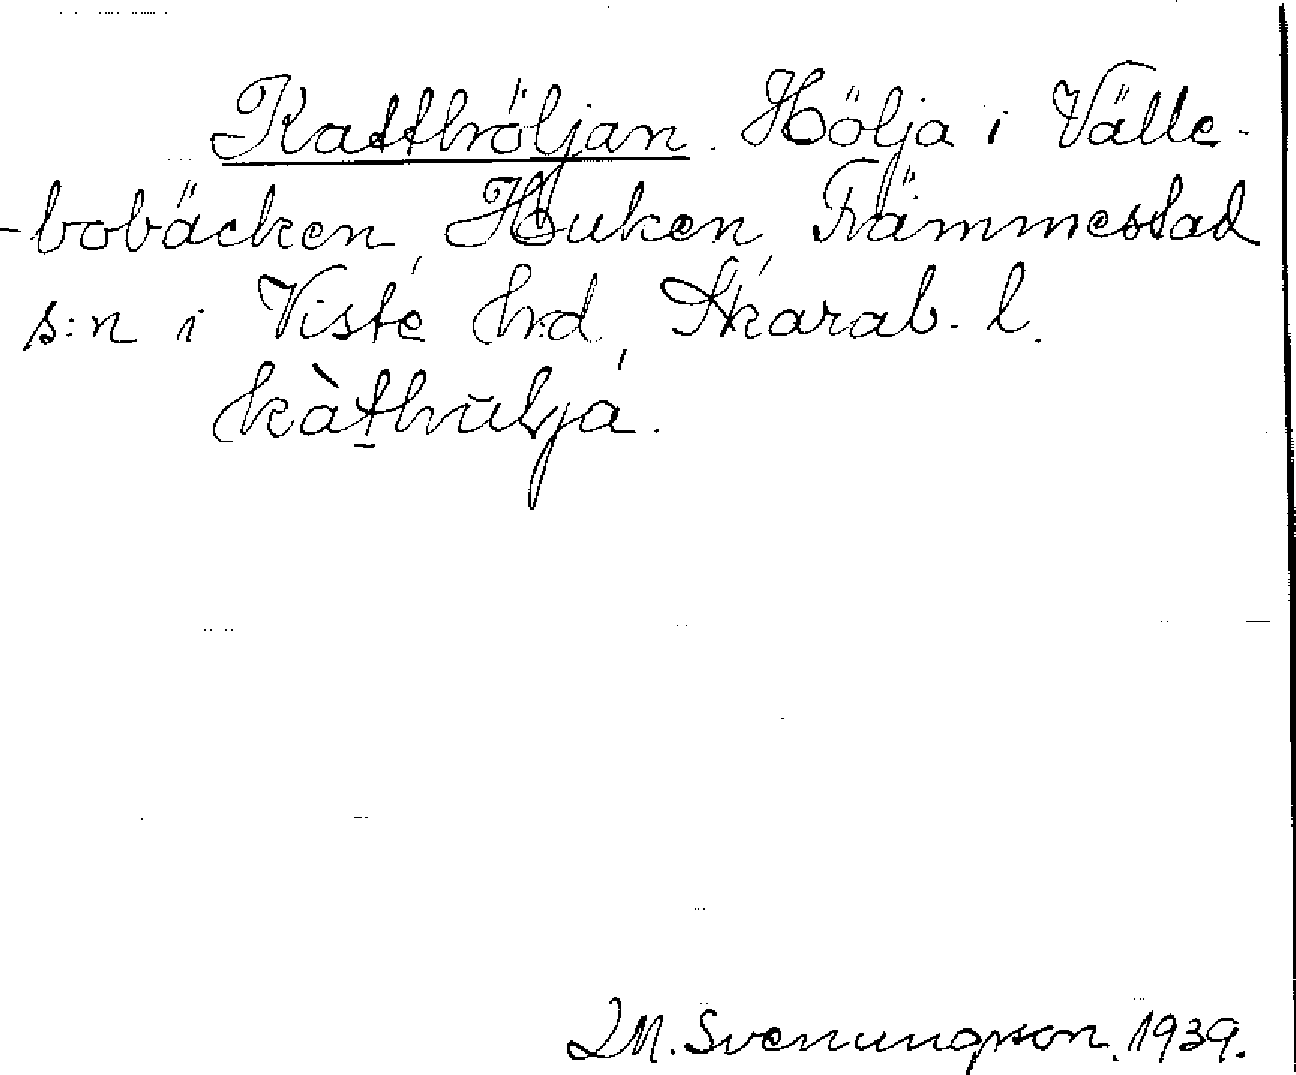 Katthöljan. Hölja i Välle-
-bobäcken, Huken, Främmestad
s:n i Viste h:d, Skarab. l.
kàthulja.
I M. Svenungsson. 1939.